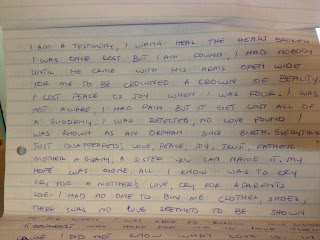 I AM A TESTIMONY, I WANA HEAL THE HEART BROKEN
I WAS ONCE LOST BUT I AM FOUND, I HAD NOBODY
UNTIL HE CAME WITH HIS ARMS OPEN WIDE
FOR ME TO BE CROWNED A CROWN OF BEAUTY.
I LOST PEACE OF JOY WHEN I WAS FOUR, I WAS
NOT AWARE, I HAD PAIN BUT IT GET LOST ALL OF
A SUDDENLY. I WAS REJECTED, NO LOVE FOUND I
WAS KNOWN AS AN ORPHAN SINCE BIRTH. EVERYTHING
JUST DISAPPEARED, LOVE, PEACE, JOY, TRUST, FATHER
MOTHER A GRANY, A SISTER YOU CAN NAME IT, MY
HOPE WAS GONE. ALL I KNOW WAS TO CRY
CRY FOR A MOTHER'S LOVE, CRY FOR APARENTS
LOVE. I HAD NO ONE TO BUY ME CLOTHES, SHOES,
THERE WAS NO LOVE SEEMED TO BE SHOWN
I DID NOT KNOW WHAT